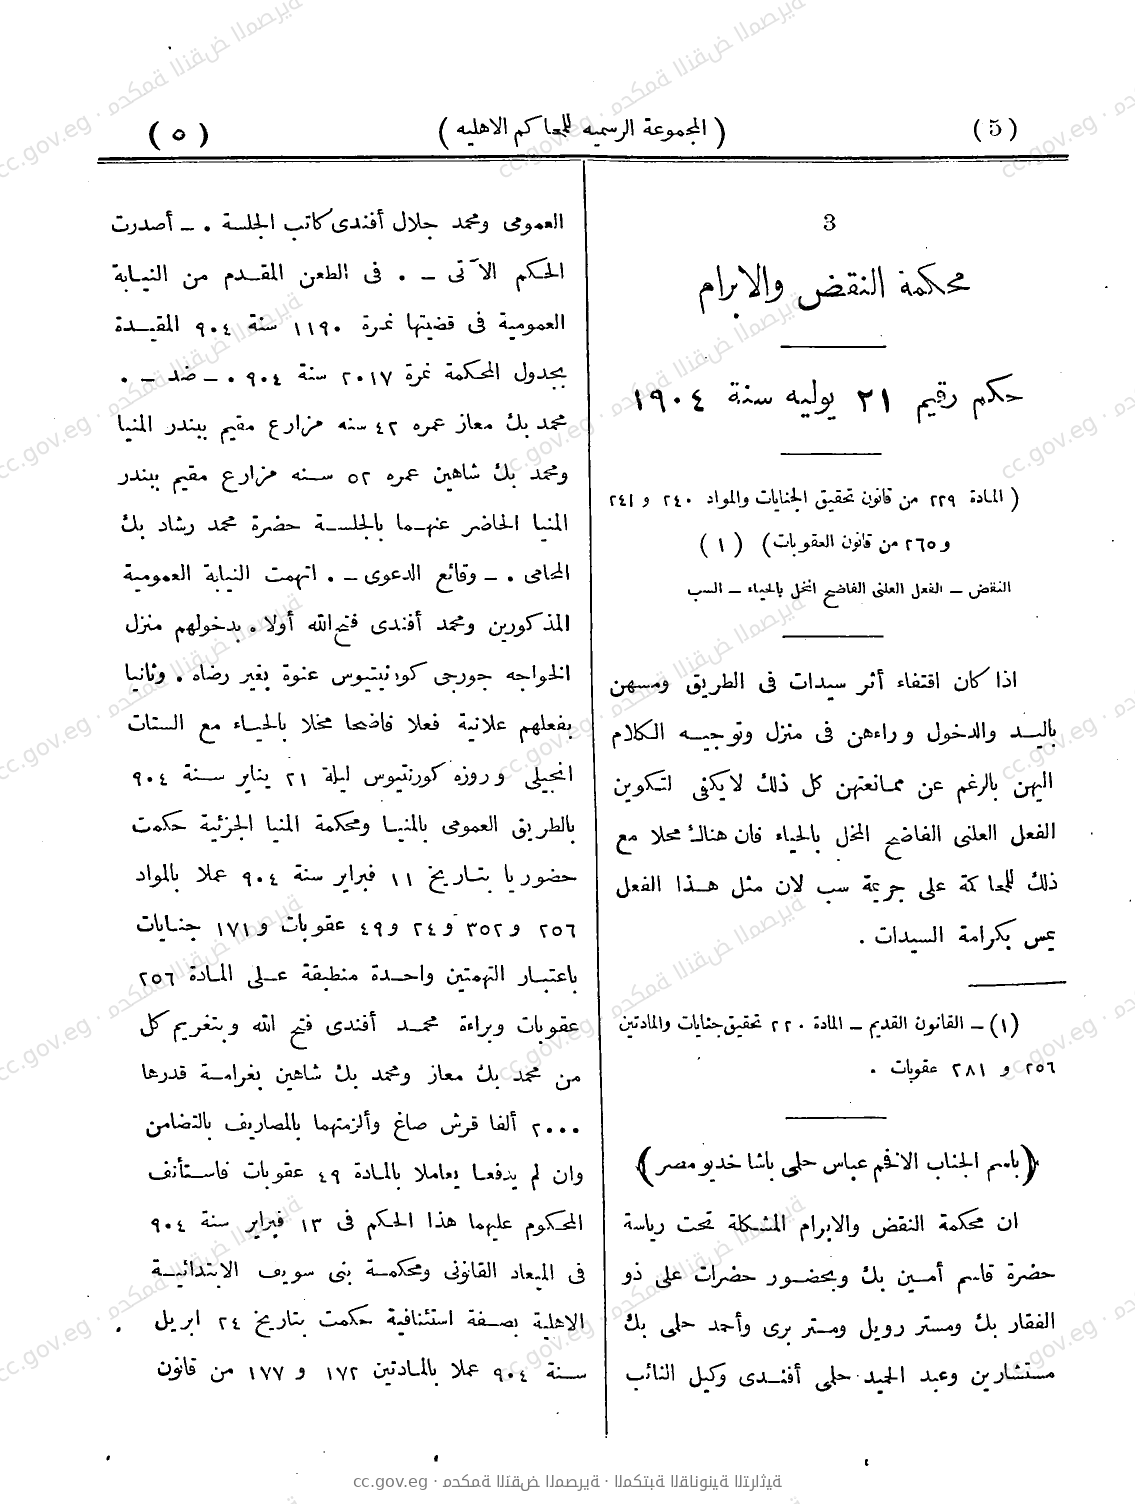 (5)
(المجموعة الرسميه للمحاكم الاهليه)
(٥)
3
محكمة النقض والابرام
حكم رقيم ٢١ يوليه سنة ١٩٠٤
( المادة ٢٢٩ من قانون تحقيق الجنايات والمواد ٢٤٠ و ٢٤١
و ٢٦٥ من قانون العقوبات) (١)
النقض – الفعل العلنى الفاضح المخل بالحياء – السب
اذا كان اقتفاء أثر سيدات فى الطريق ومسهن
باليد والدخول وراءهن فى منزل وتوجيه الكلام
اليهن بالرغم عن ممانعتهن كل ذلك لا يكفى لتكوين
الفعل العلنى الفاضح المخل بالحياء فان هناك محلا مع
ذلك للمحاكمة على جريمة سب لان مثل هذا الفعل
يمس بكرامة السيدات .
(١) – القانون القديم – المادة ٢٢٠ تحقيق جنايات والمادتين
٢٥٦ و ٢٨١ عقوبات .
(باسم الجناب الافخم عباس حلمى باشا خديو مصر)
ان محكمة النقض والابرام المشكلة تحت رياسة
حضرة قاسم أمين بك وبحضور حضرات على ذو
الفقار بك ومستر رويل ومستر برى وأحمد حلمى بك
مستشارين وعبد الحميد حلمى أفندى وكيل النائب
العمومى ومحمد جلال أفندى كاتب الجلسة . – أصدرت
الحكم الآتى – . فى الطعن المقدم من النيابة
العمومية فى قضيتها نمرة ١١٩٠ سنة ٩٠٤ المقيدة
بجدول المحكمة نمرة ٢٠١٧ سنة ٩٠٤ . – ضد – .
محمد بك معاز عمره ٤٢ سنه مزارع مقيم ببندر المنيا
ومحمد بك شاهين عمره ٥٢ سنه مزارع مقيم ببندر
المنيا الحاضر عنهما بالجلسة حضرة محمد رشاد بك
المحامى . – وقائع الدعوى – . اتهمت النيابة العمومية
المذكورين ومحمد أفندى فتح الله أولا . بدخولهم منزل
الخواجه جورجى كورنيتيوس عنوة بغير رضاه . وثانيا
بفعلهم علانية فعلا فاضحا مخلا بالحياء مع الستات
انجيلى وروزه كورنتيوس ليلة ٢١ يناير سنة ٩٠٤
بالطريق العمومى بالمنيا ومحكمة المنيا الجزئية حكمت
حضوريا بتاريخ ١١ فبراير سنة ٩٠٤ عملا بالمواد
٢٥٦ و ٣٥٢ و ٢٤ و ٤٩ عقوبات و ١٧١ جنايات
باعتبار التهمتين واحدة منطبقة على المادة ٢٥٦
عقوبات وبراءة محمد أفندى فتح الله وبتغريم كل
من محمد بك معاز ومحمد بك شاهين بغرامة قدرها
٢٠٠٠ ألفا قرش صاغ وألزمتهما بالمصاريف بالتضامن
وان لم يدفعا يعاملا بالمادة ٤٩ عقوبات فاستأنف
المحكوم عليهما هذا الحكم فى ١٣ فبراير سنة ٩٠٤
فى الميعاد القانونى ومحكمة بنى سويف الابتدائية
الاهلية بصفة استئنافية حكمت بتاريخ ٢٤ ابريل
سنة ٩٠٤ عملا بالمادتين ١٧٢ و ١٧٧ من قانون
cc.gov.eg · محكمة النقض المصرية · المكتبة القانونية التراثية